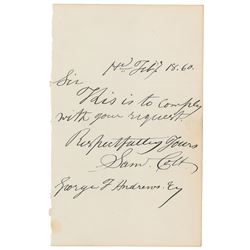 Hd Feby 18.60.
Sir
This is to comply
with your request
Respectfully Yours
Sam. Colt
George F Andrews. Esq